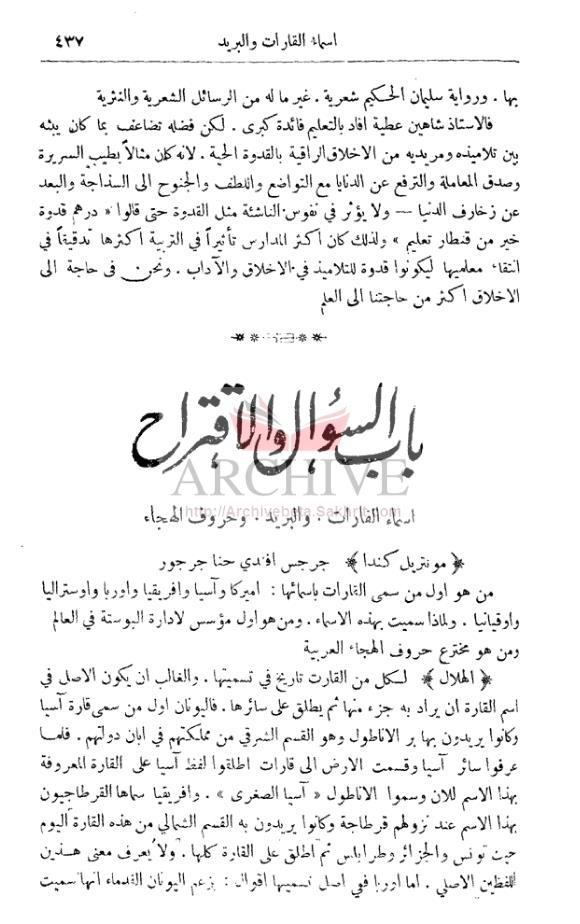 اسماء القارات والبريد ٤٣٧
بها . ورواية سليمان الحكيم شعرية . غير ما له من الرسائل الشعرية والنثرية
فالاستاذ شاهين عطية افاد بالتعليم فائدة كبرى . لكن فضله تضاعف بما كان يبثه
بين تلاميذه ومريديه من الاخلاق الراقية بالقدوة الحية . لانه كان مثالاً بطيب السريرة
وصدق المعاملة والترفع عن الدنايا مع التواضع واللطف والجنوح الى السذاجة والبعد
عن زخارف الدنيا — ولا يؤثر في نفوس الناشئة مثل القدوة حتى قالوا « درهم قدوة
خير من قنطار تعليم » ولذلك كان اكثر المدارس تأثيراً في التربية اكثرها تدقيقاً في
انتقاء معلميها ليكونوا قدوة للتلاميذ في الاخلاق والآداب . ونحن في حاجة الى
الاخلاق اكثر من حاجتنا الى العلم
باب السؤال والاقتراح
ARCHIVE
http://Archivebeta.Sakhrit.com
اسماء القارات . والبريد . وحروف الهجاء
﴿ مونتريل كندا ﴾ جرجس افندي حنا جرجور
من هو اول من سمى القارات باسمائها : اميركا وآسيا وافريقيا واوربا واوستراليا
واوقيانيا . ولماذا سميت بهذه الاسماء . ومن هو اول مؤسس لادارة البوستة في العالم
ومن هو مخترع حروف الهجاء العربية
﴿ الهلال ﴾ لكل من القارت تاريخ في تسميتها . والغالب ان يكون الاصل في
اسم القارة ان يراد به جزء منها ثم يطلق على سائرها . فاليونان اول من سمى قارة آسيا
وكانوا يريدون بها بر الاناطول وهو القسم الشرقي من مملكتهم في ابان دولتهم . فلما
عرفوا سائر آسيا وقسمت الارض الى قارات اطلقوا لفظ آسيا على القارة المعروفة
بهذا الاسم للان وسموا الاناطول « آسيا الصغرى » . وافريقيا سماها القرطاجيون
بهذا الاسم عند نزولهم قرطاجة وكانوا يريدون به القسم الشمالي من هذه القارة اليوم
حيث تونس والجزائر وطرابلس ثم اطلق على القارة كلها . ولا يعرف معنى هذين
اللفظين الاصلي . اما اوربا ففي اصل تسميتها اقوال : يزعم اليونان القدماء انها سميت